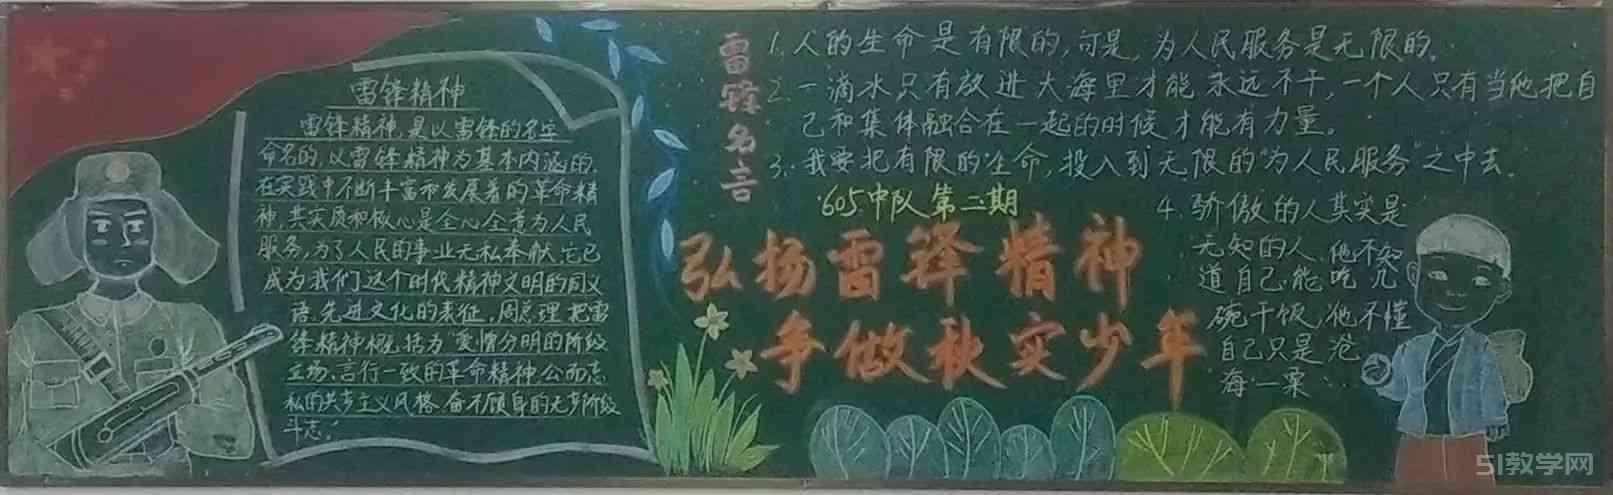 雷锋精神
雷锋精神,是以雷锋的名字
命名的,以雷锋精神为基本内涵的,
在实践中不断丰富和发展着的革命精
神,其实质和核心是全心全意为人民
服务,为了人民的事业无私奉献。它已
成为我们这个时代精神文明的同义
语、先进文化的表征。周总理把雷
锋精神概括为“爱憎分明的阶级
立场、言行一致的革命精神、公而忘
私的共产主义风格、奋不顾身的无产阶级
斗志。”
雷锋名言
1.人的生命是有限的,可是,为人民服务是无限的。
2.一滴水只有放进大海里才能永远不干,一个人只有当他把自
己和集体融合在一起的时候才能有力量。
3.我要把有限的生命,投入到无限的“为人民服务”之中去。
605中队第二期
弘扬雷锋精神
争做秋实少年
4.骄傲的人其实是
无知的人,他不知
道自己能吃几
碗干饭,他不懂
自己只是沧
海一粟…
51教学网